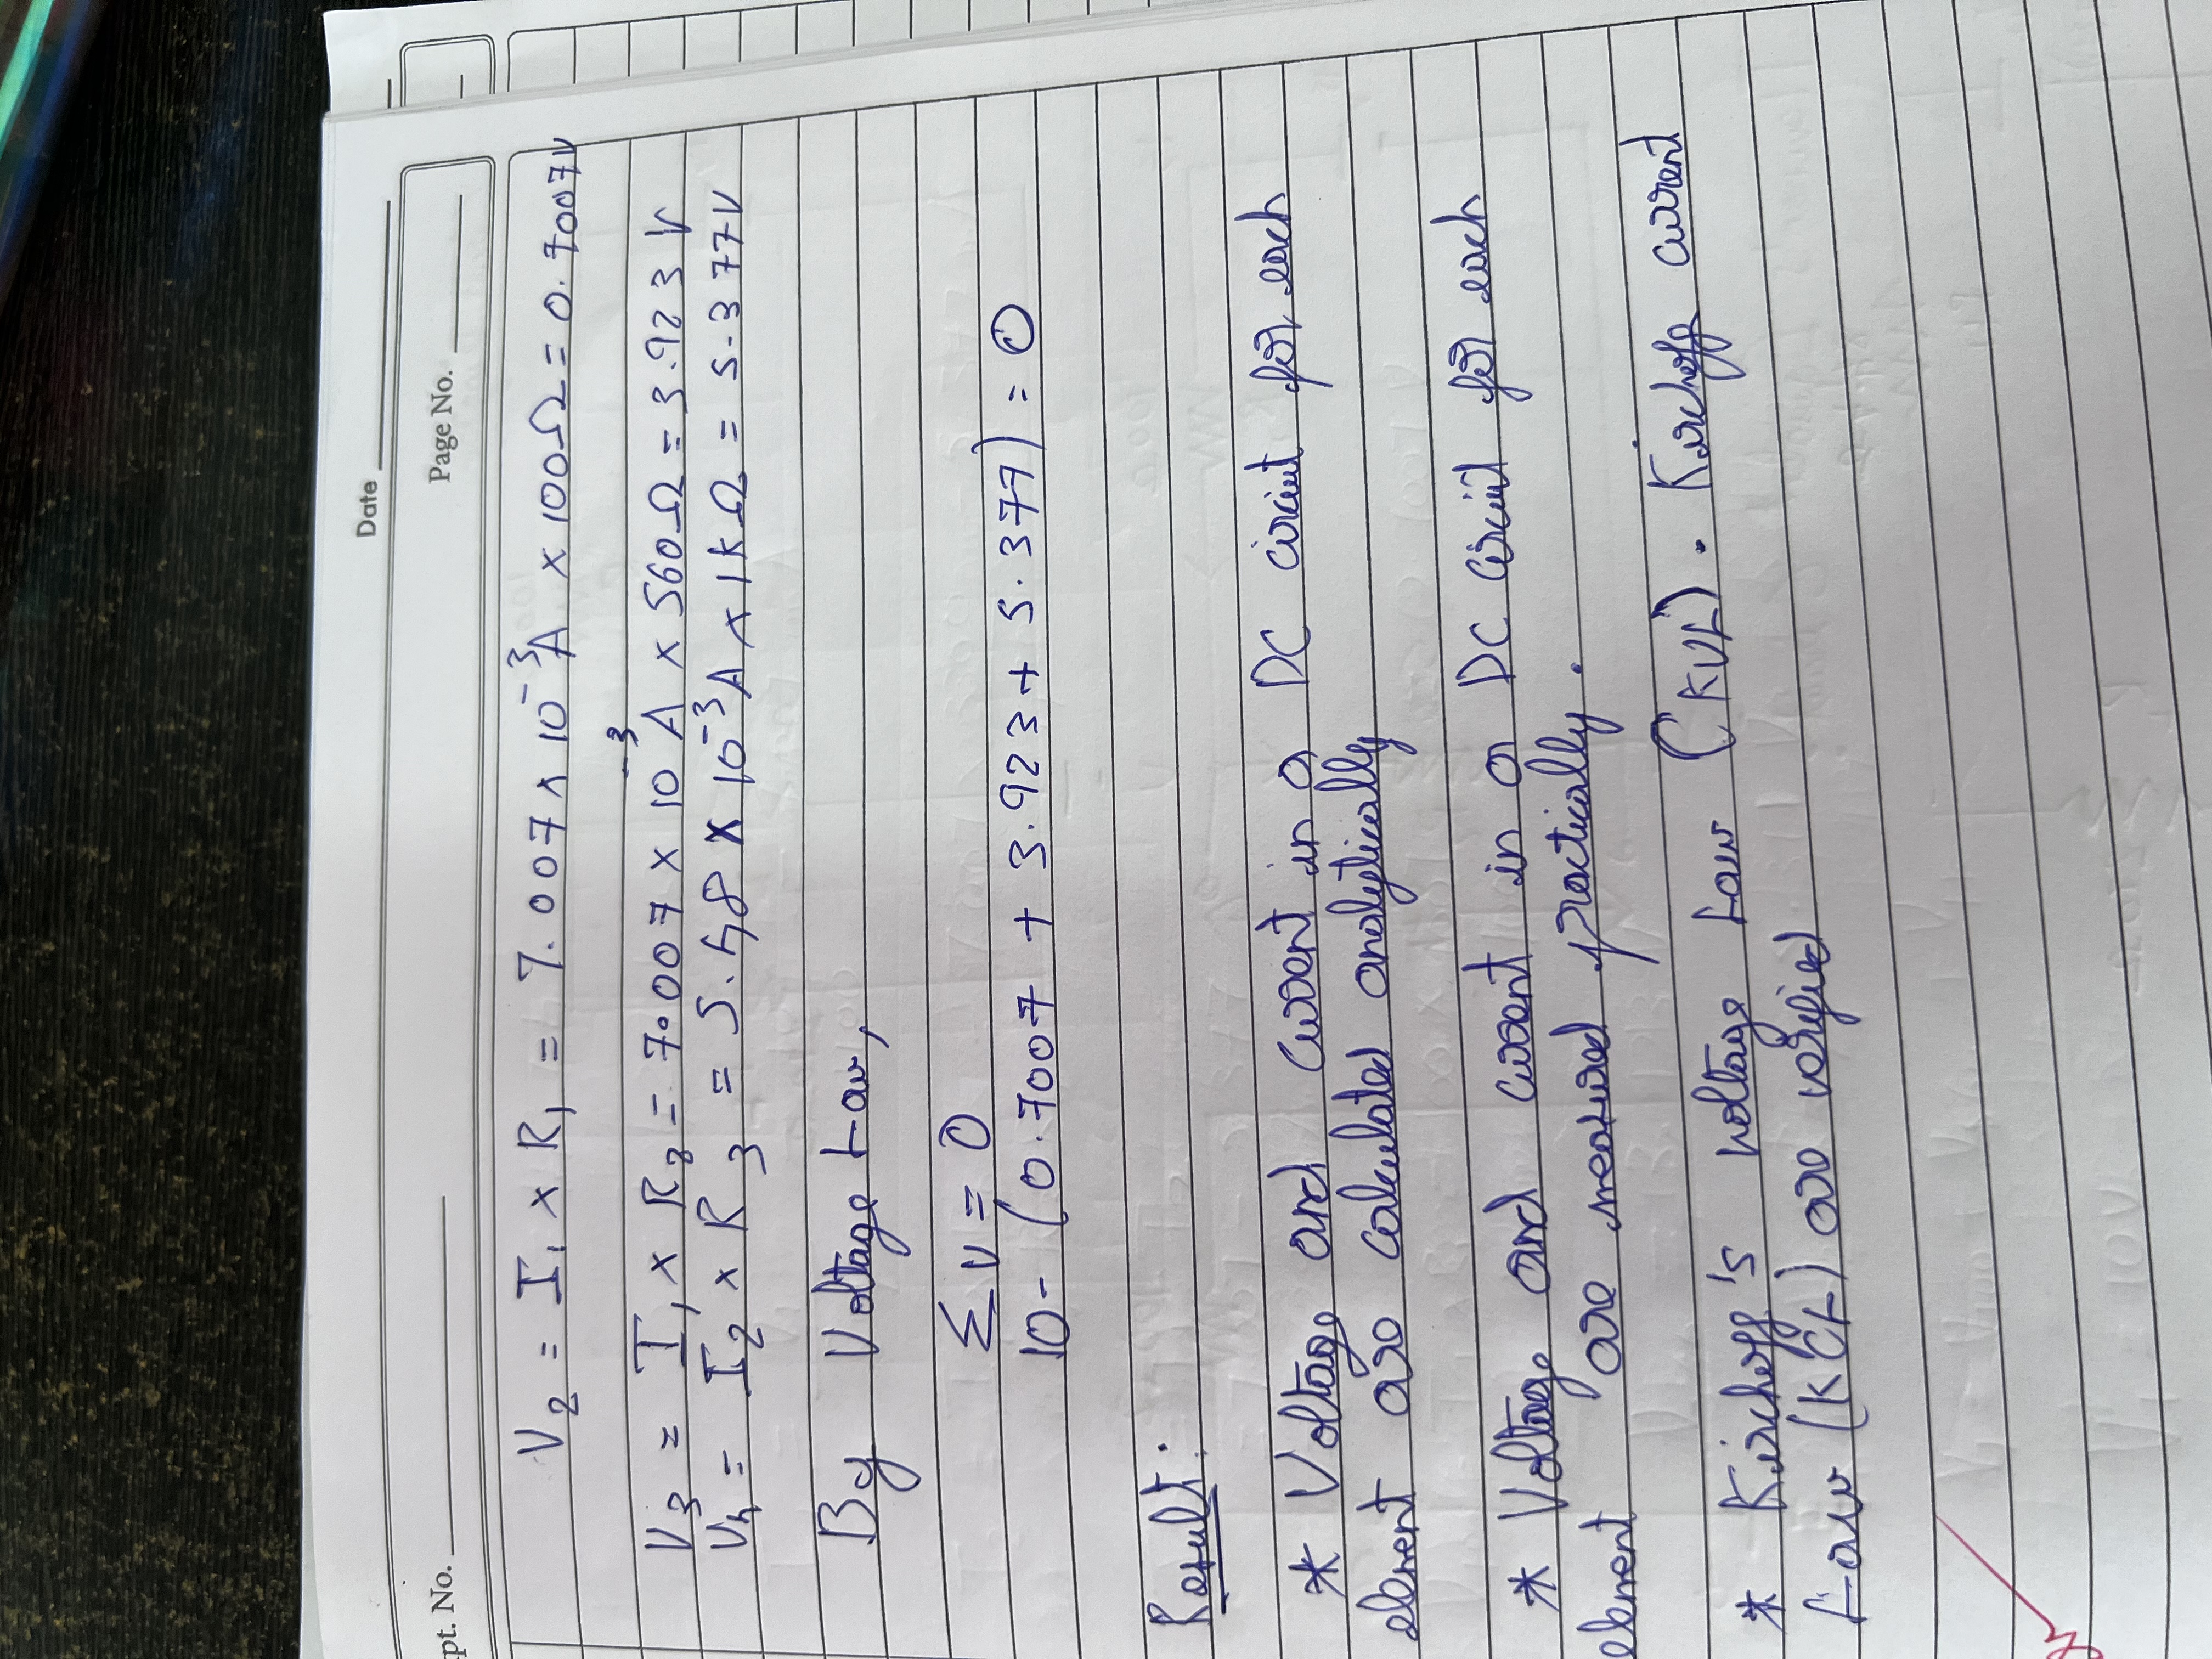 Date
pt. No. Page No.
V₂ = I₁ × R₁ = 7.007 × 10⁻³A × 100Ω = 0.7007V
V₃ = I₁ × R₂ = 7.007 × 10⁻³ A × 560Ω = 3.923 V
V₄ = I₂ × R₃ = 5.48 × 10⁻³A × 1KΩ = 5.377V
By Voltage Law,
ΣV = 0
10 - (0.7007 + 3.923 + 5.377) = 0
Result:
* Voltage and current in a DC circuit for each
element are calculated analytically
* Voltage and current in a DC circuit for each
element are measured practically.
* Kirchoff's voltage Law (KVL). Kirchoff current
Law (KCL) are verified